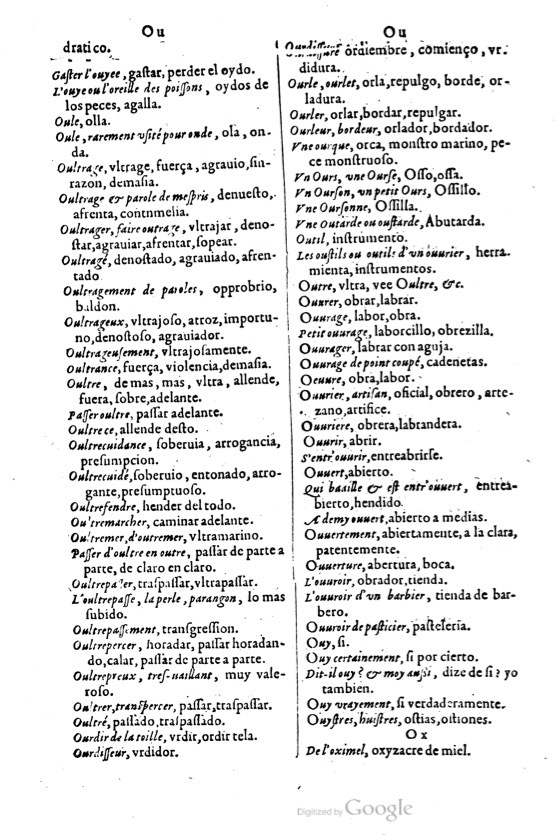 Ou
dratico.
Gaſter l'ouyee, gaſtar, perder el oydo.
L'ouye ou l'oreille des poiſſons, oydos de
los peces, agalla.
Oule, olla.
Oule, rarement vſité pour onde, ola, on-
da.
Oultrage, vltrage, fuerça, agrauio, ſin-
razon, demaſia.
Oultrage & parole de meſpris, denueſto,
afrenta, contumelia.
Oultrager, faire outrage, vltrajar, deno-
ſtar, agrauiar, afrentar, ſopear.
Oultragé, denoſtado, agrauiado, afren-
tado
Oultragement de paroles, opprobrio,
baldon.
Oultrageux, vltrajoſo, atroz, importu-
no, denoſtoſo, agrauiador.
Oultrageuſement, vltrajoſamente.
Oultrance, fuerça, violencia, demaſia.
Oultre, de mas, mas, vltra, allende,
fuera, ſobre, adelante.
Paſſer oultre, paſſar adelante.
Oultre ce, allende deſto.
Oultrecuidance, ſoberuia, arrogancia,
preſumpcion.
Oultrecuidé, ſoberuio, entonado, arro-
gante, preſumptuoſo.
Oultrefendre, hender del todo.
Oultremarcher, caminar adelante.
Oultremer, d'outremer, vltramarino.
Paſſer d'oultre en outre, paſſar de parte a
parte, de claro en claro.
Oultrepaſſer, traſpaſſar, vltrapaſſar.
L'oultrepaſſe, la perle, parangon, lo mas
ſubido.
Oultrepaſſement, tranſgreſſion.
Oultrepercer, horadar, paſſar horadan-
do, calar, paſſar de parte a parte.
Oultrepreux, treſ-uaillant, muy vale-
roſo.
Oultrer, transpercer, paſſar, traſpaſſar.
Oultré, paſſado, traſpaſſado.
Ourdir de la toille, vrdir, ordir tela.
Ourdiſſeur, vrdidor.
Ou
Ourdiſſure ordiembre, comienço, vr-
didura.
Ourle, ourlet, orla, repulgo, borde, or-
ladura.
Ourler, orlar, bordar, repulgar.
Ourleur, bordeur, orlador, bordador.
Vne ourque, orca, monſtro marino, pe-
ce monſtruoſo.
Vn Ours, vne Ourſe, Oſſo, oſſa.
Vn Ourſon, vn petit Ours, Oſſillo.
Vne Ourſonne, Oſſilla.
Vne Outarde ou ouſtarde, Abutarda.
Outil, inſtrumento.
Les ouſtils ou outils d'vn ouurier, herra-
mienta, inſtrumentos.
Outre, vltra, vee Oultre, &c.
Ouurer, obrar, labrar.
Ouurage, labor, obra.
Petit ouurage, laborcillo, obrezilla.
Ouurager, labrar con aguja.
Ouurage de point coupé, cadenetas.
Oeuure, obra, labor.
Ouurier, artiſan, oficial, obrero, arte-
zano, artifice.
Ouuriere, obrera, labrandera.
Ouurir, abrir.
S'entr'ouurir, entreabrirſe.
Ouuert, abierto.
Qui baaille & eſt entr'ouuert, entrea-
bierto, hendido.
A demy ouuert, abierto a medias.
Ouuertement, abiertamente, a la clara,
patentemente.
Ouuerture, abertura, boca.
L'ouuroir, obrador, tienda.
L'ouuroir d'vn barbier, tienda de bar-
bero.
Ouuroir de paſticier, paſteleria.
Ouy, ſi.
Ouy certainement, ſi por cierto.
Dit-il ouy? & moy auſſi, dize de ſi? yo
tambien.
Ouy vrayement, ſi verdaderamente.
Ouyſtres, huiſtres, oſtias, oſtiones.
Ox
De l'oximel, oxyzacre de miel.
Digitized by Google